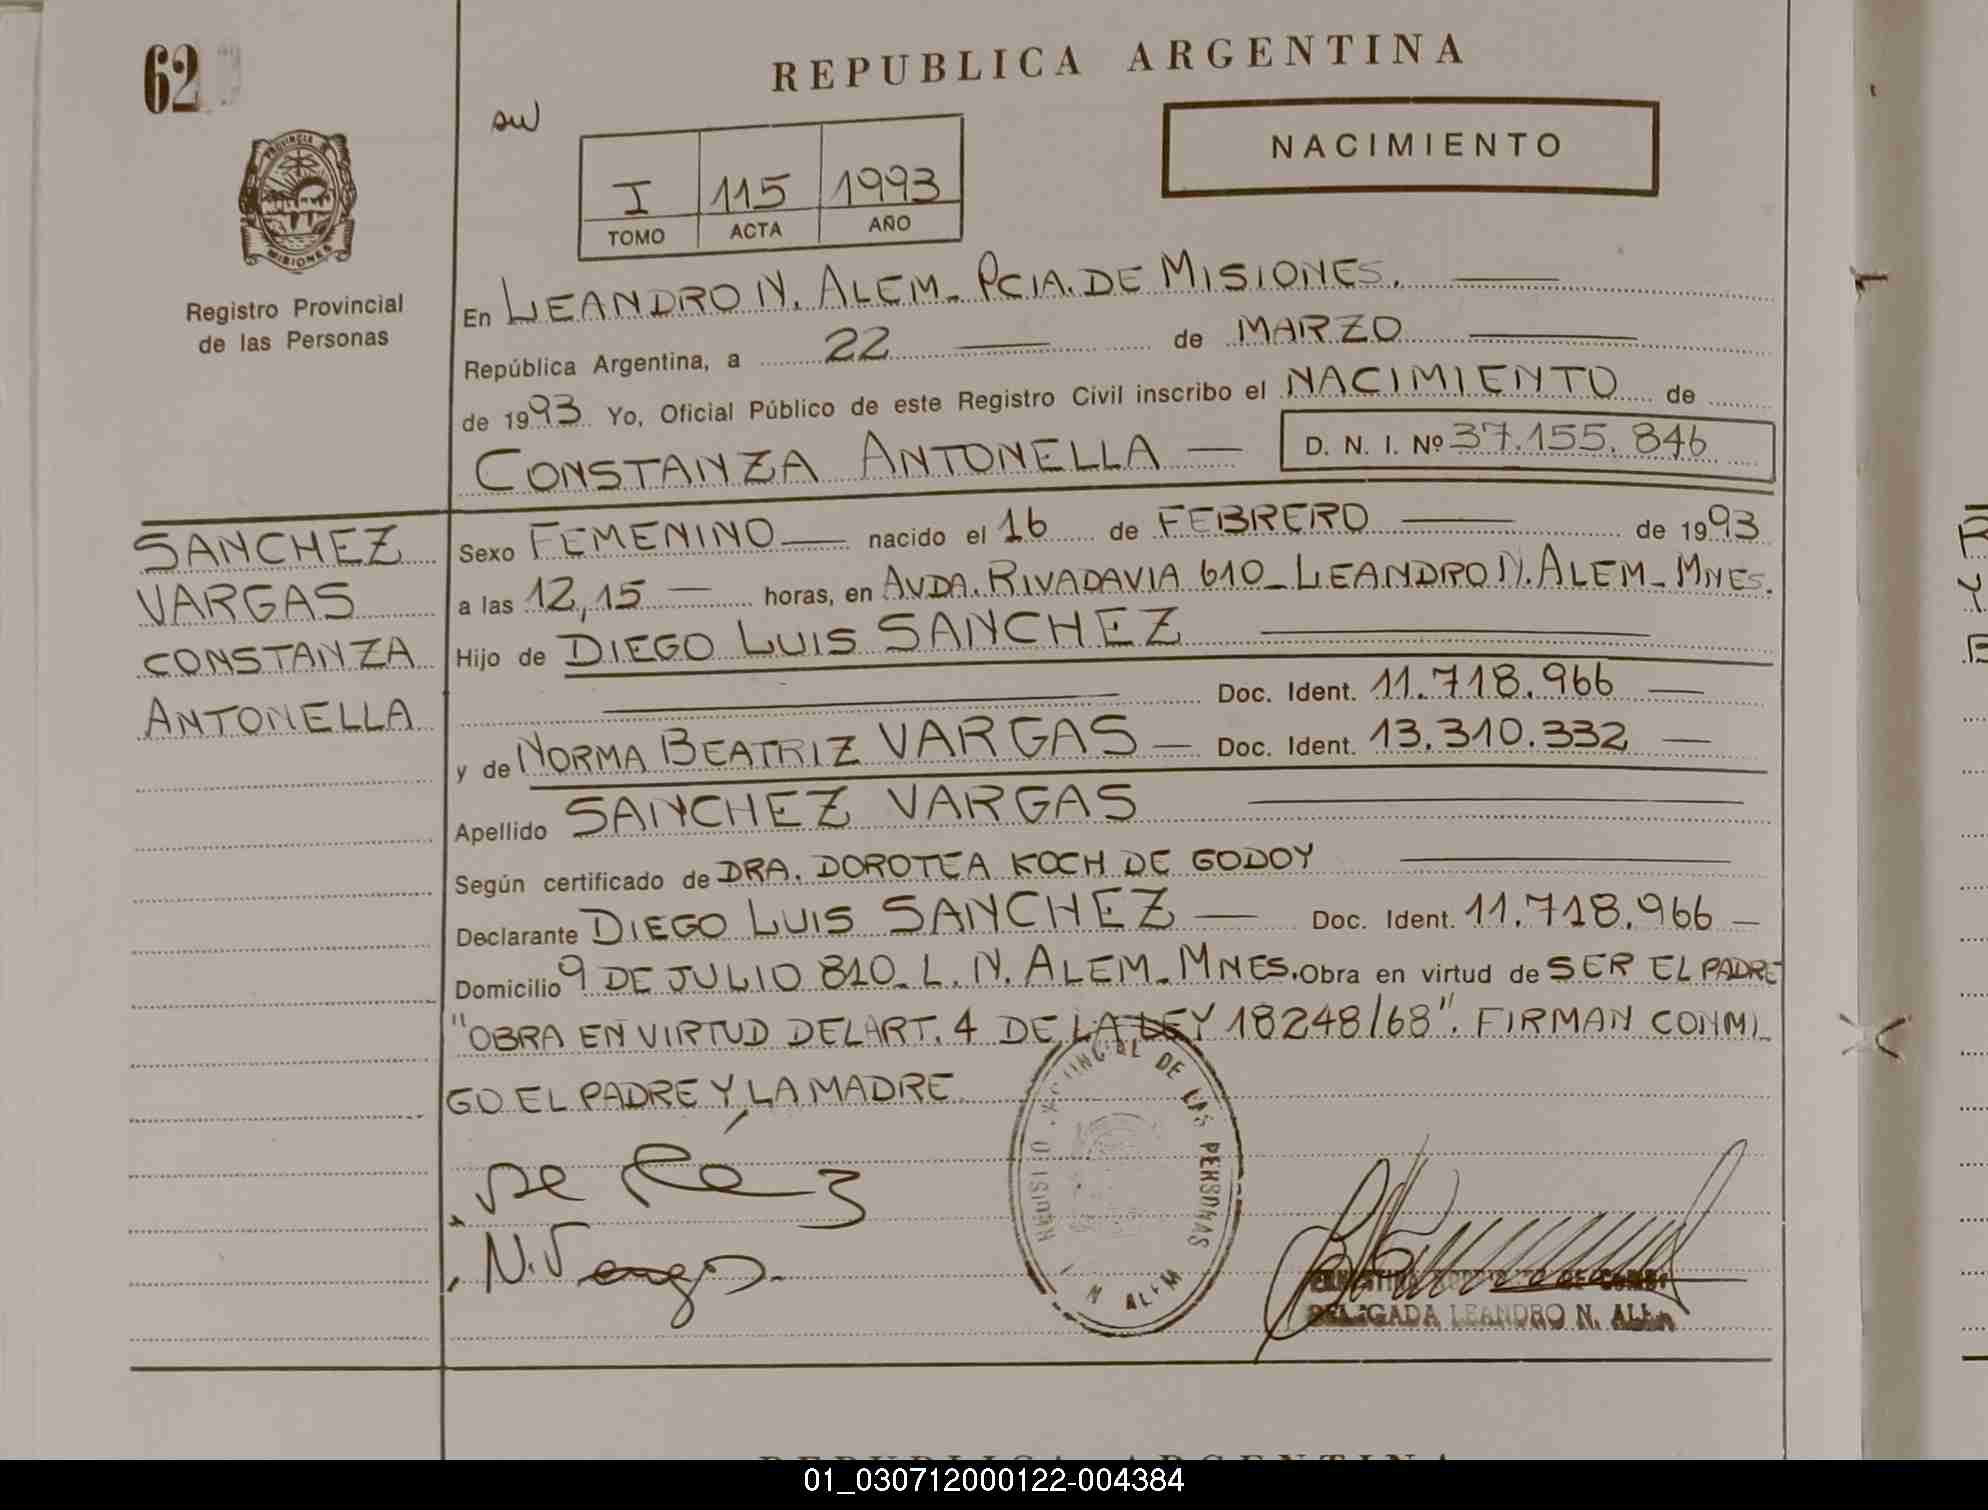 62
REPUBLICA ARGENTINA
NACIMIENTO
I 115 1993
TOMO ACTA AÑO
PROVINCIA
MISIONES
Registro Provincial
de las Personas
En LEANDRO N. ALEM_ PCIA. DE MISIONES.
República Argentina, a 22 de MARZO
de 1993 Yo, Oficial Público de este Registro Civil inscribo el NACIMIENTO de
CONSTANZA ANTONELLA — D. N. I. Nº 37.155.846
SANCHEZ
VARGAS
CONSTANZA
ANTONELLA
Sexo FEMENINO — nacido el 16 de FEBRERO — de 1993
a las 12,15 — horas, en AVDA. RIVADAVIA 610_ LEANDRO N. ALEM_ MNES.
Hijo de DIEGO LUIS SANCHEZ
Doc. Ident. 11.718.966 —
y de NORMA BEATRIZ VARGAS — Doc. Ident. 13.310.332 —
Apellido SANCHEZ VARGAS
Según certificado de DRA. DOROTEA KOCH DE GODOY
Declarante DIEGO LUIS SANCHEZ — Doc. Ident. 11.718.966 —
Domicilio 9 DE JULIO 810_ L. N. ALEM_ MNES. Obra en virtud de SER EL PADRE
"OBRA EN VIRTUD DEL ART. 4 DE LA LEY 18248/68". FIRMAN CONMI_
GO EL PADRE Y LA MADRE
DE LAS PERSONAS
N ALEM
N. Vargas
DELEGADA LEANDRO N. ALEM
REPUBLICA ARGENTINA
01_030712000122-004384